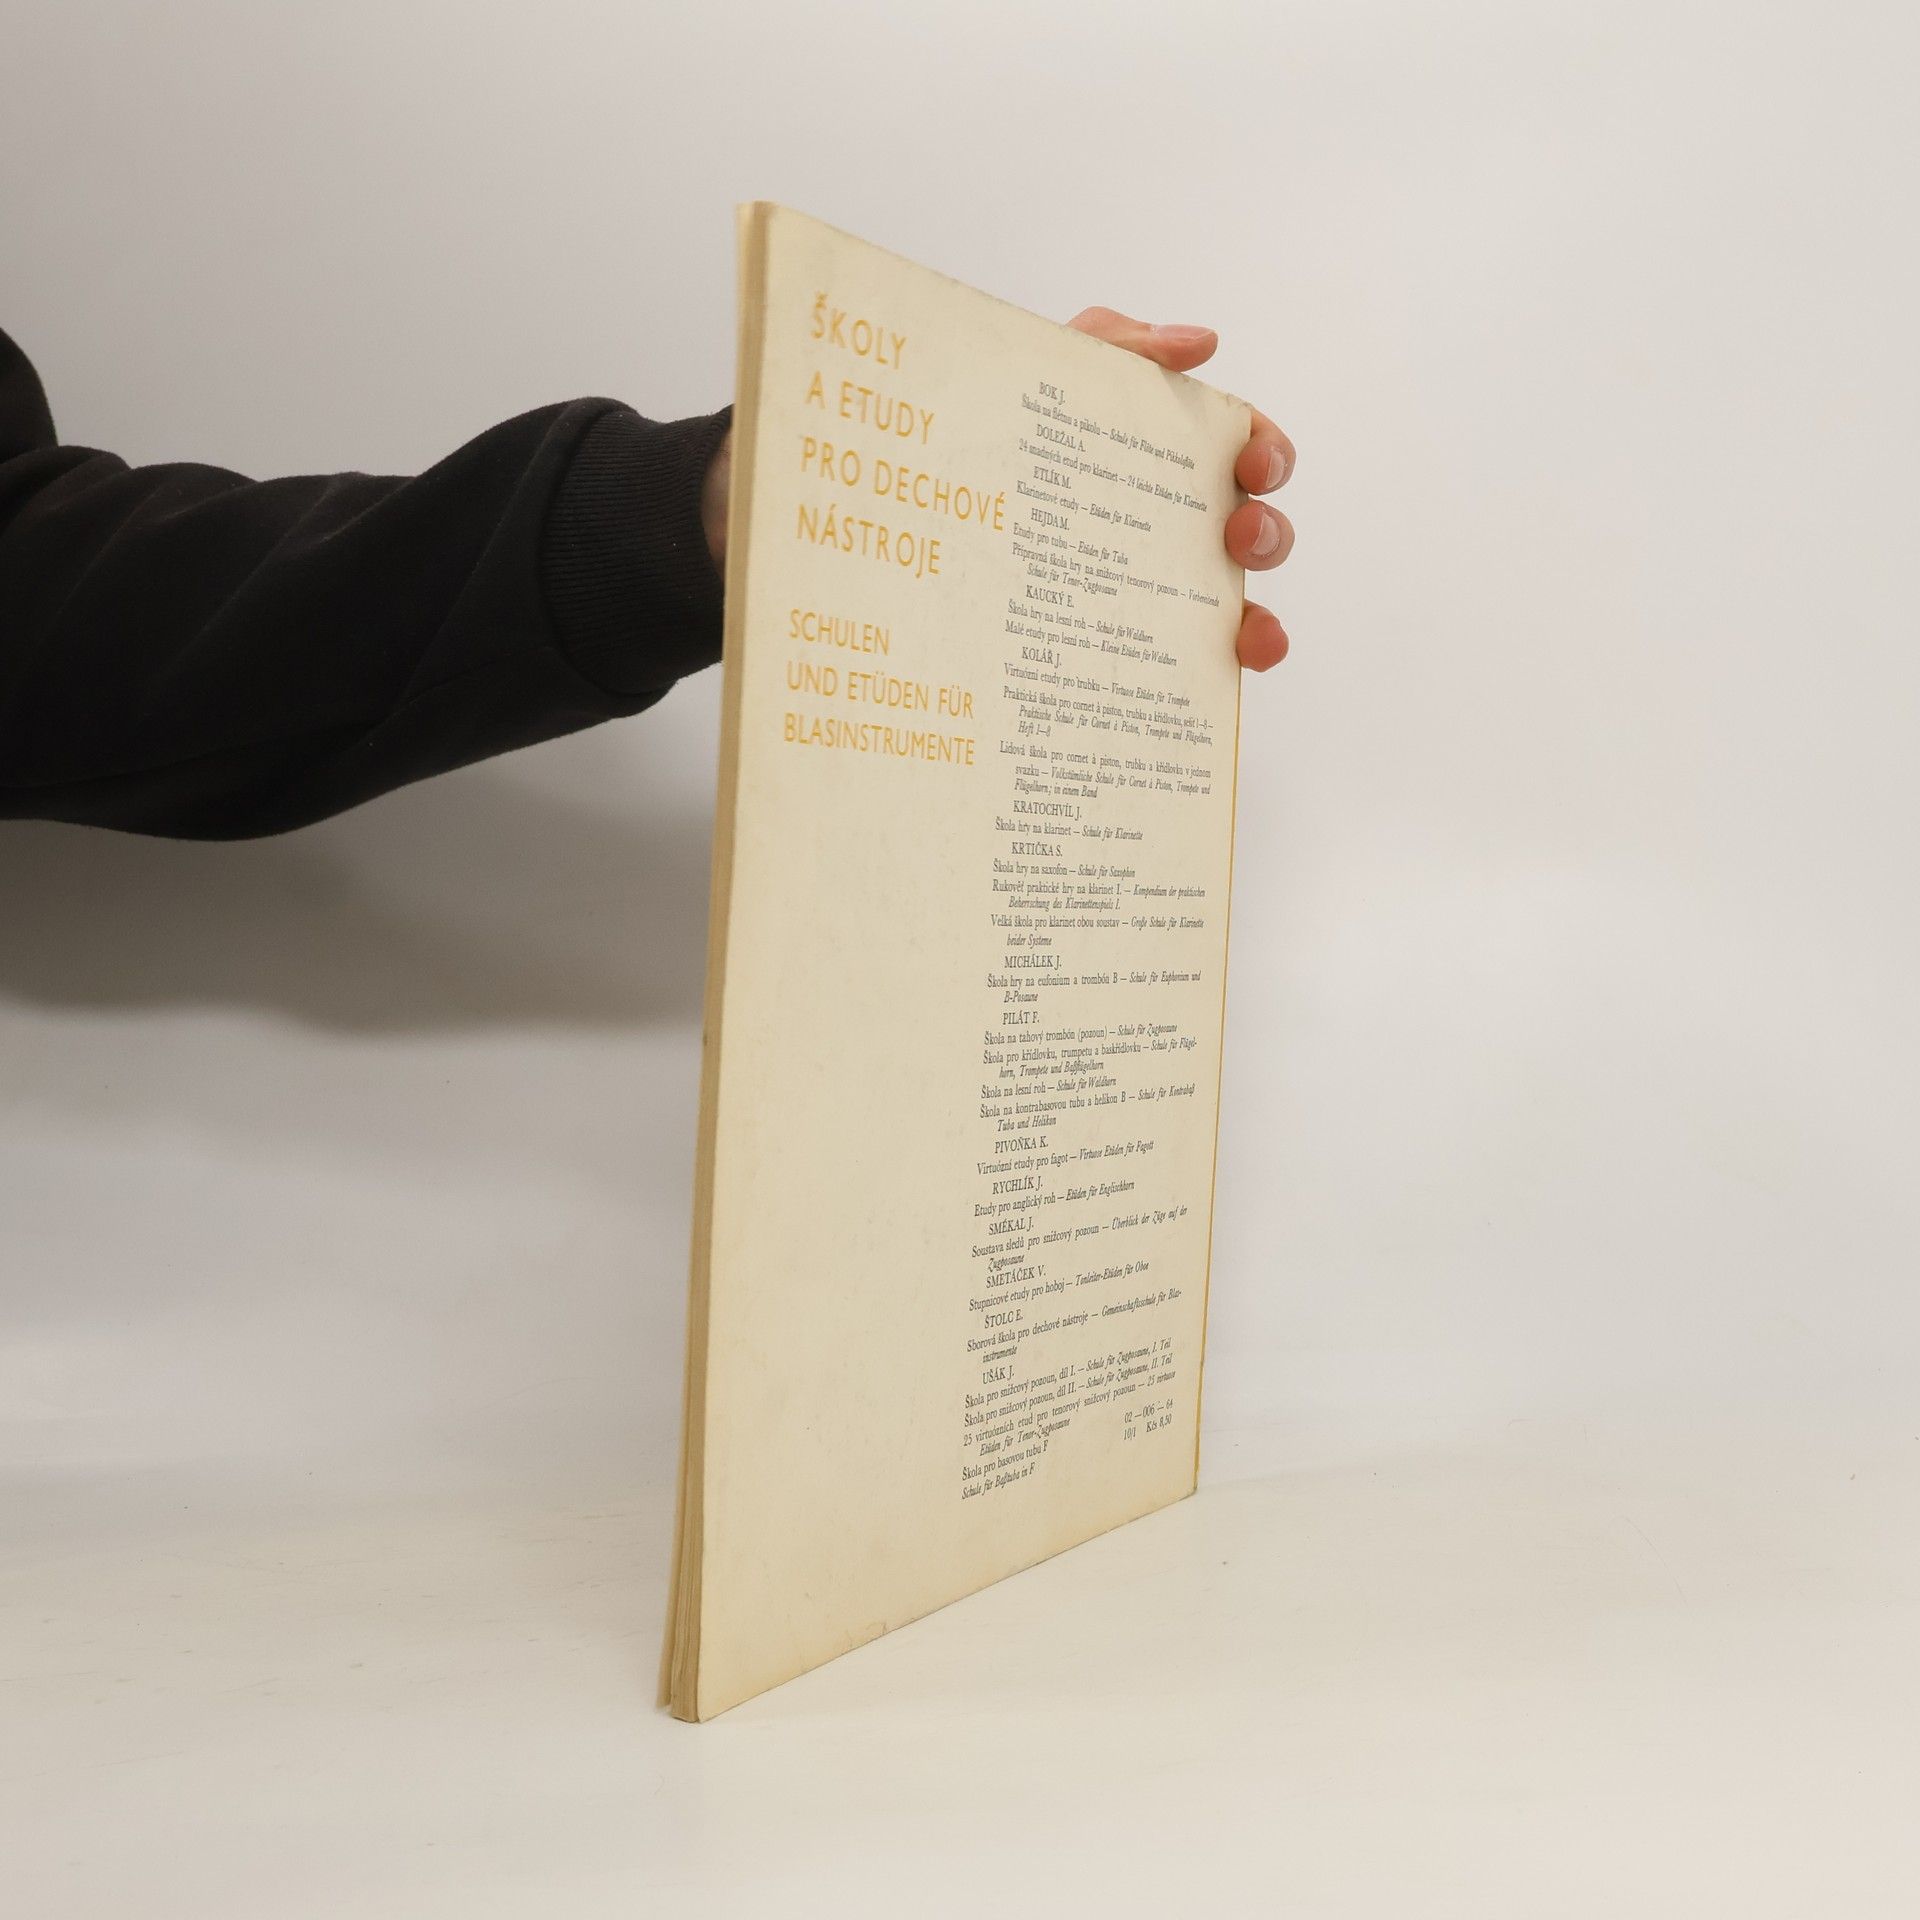 ŠKOLY
A ETUDY
PRO DECHOVÉ
NÁSTROJE
SCHULEN
UND ETÜDEN FÜR
BLASINSTRUMENTE
BOK J.
Škola na flétnu a pikolu — Schule für Flöte und Pikkoloflöte
DOLEŽAL A.
24 snadných etud pro klarinet — 24 leichte Etüden für Klarinette
ETLÍK M.
Klarinetové etudy — Etüden für Klarinette
HEJDA M.
Etudy pro tubu — Etüden für Tuba
Přípravná škola hry na snižcový tenorový pozoun — Vorbereitende
Schule für Tenor-Zugposaune
KAUCKÝ E.
Škola hry na lesní roh — Schule für Waldhorn
Malé etudy pro lesní roh — Kleine Etüden für Waldhorn
KOLÁŘ J.
Virtuózní etudy pro trubku — Virtuose Etüden für Trompete
Praktická škola pro cornet à piston, trubku a křídlovku, sešit 1—8 —
Praktische Schule für Cornet à Piston, Trompete und Flügelhorn,
Heft 1—8
Lidová škola pro cornet à piston, trubku a křídlovku v jednom
svazku — Volkstümliche Schule für Cornet à Piston, Trompete und
Flügelhorn; in einem Band
KRATOCHVÍL J.
Škola hry na klarinet — Schule für Klarinette
KRTIČKA S.
Škola hry na saxofon — Schule für Saxophon
Rukověť praktické hry na klarinet I. — Kompendium der praktischen
Beherrschung des Klarinettenspiels I.
Velká škola pro klarinet obou soustav — Große Schule für Klarinette
beider Systeme
MICHÁLEK J.
Škola hry na eufonium a trombón B — Schule für Euphonium und
B-Posaune
PILÁT F.
Škola na tahový trombón (pozoun) — Schule für Zugposaune
Škola pro křídlovku, trumpetu a baskřídlovku — Schule für Flügel-
horn, Trompete und Baßflügelhorn
Škola na lesní roh — Schule für Waldhorn
Škola na kontrabasovou tubu a helikon B — Schule für Kontrabaß
Tuba und Helikon
PIVOŇKA K.
Virtuózní etudy pro fagot — Virtuose Etüden für Fagott
RYCHLÍK J.
Etudy pro anglický roh — Etüden für Englischhorn
SMÉKAL J.
Soustava sledů pro snižcový pozoun — Überblick der Züge auf der
Zugposaune
SMETÁČEK V.
Stupnicové etudy pro hoboj — Tonleiter-Etüden für Oboe
ŠTOLC E.
Sborová škola pro dechové nástroje — Gemeinschaftsschule für Blas-
instrumente
UŠÁK J.
Škola pro snižcový pozoun, díl I. — Schule für Zugposaune, I. Teil
Škola pro snižcový pozoun, díl II. — Schule für Zugposaune, II. Teil
25 virtuózních etud pro tenorový snižcový pozoun — 25 virtuose
Etüden für Tenor-Zugposaune
Škola pro basovou tubu F
Schule für Baßtuba in F
02 — 006 — 64
10/1 Kčs 8,50